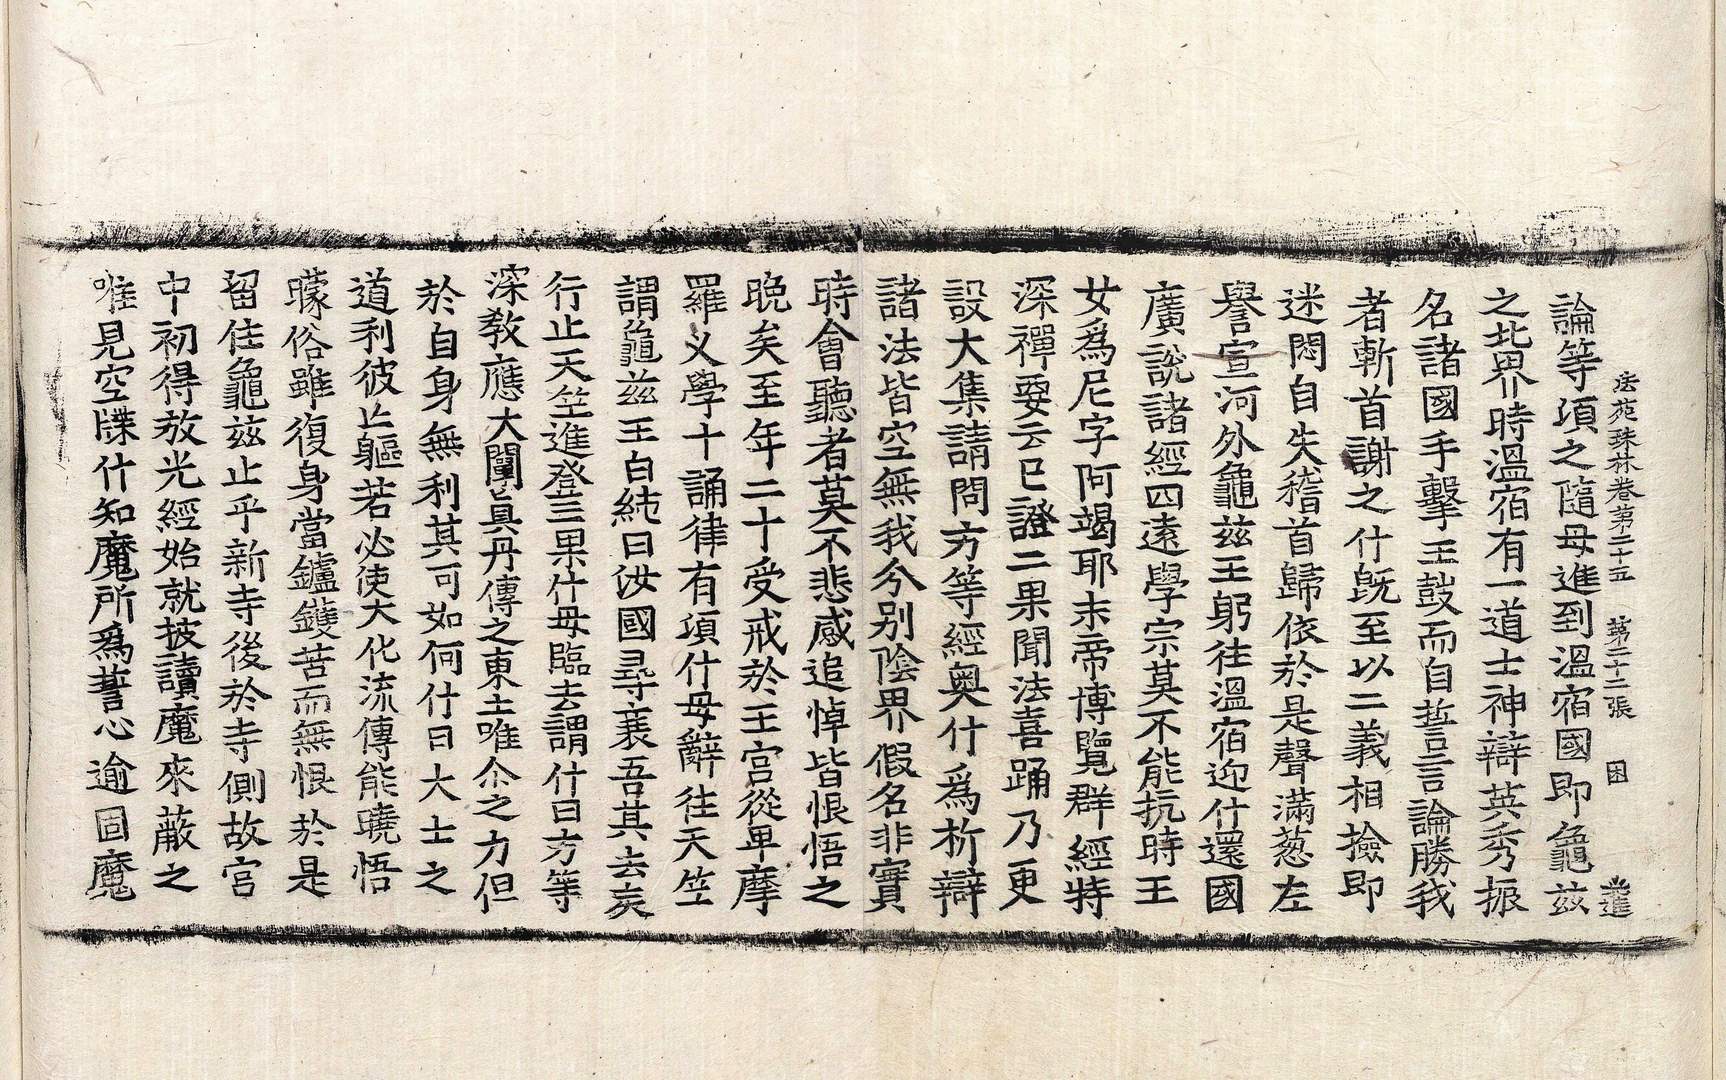 法苑珠林卷第二十五 第二十二張 困 進
論等頃之隨母進到溫宿國即龜茲
之北界時溫宿有一道士神辯英秀振
名諸國手擊王鼓而自誓言論勝我
者斬首謝之什既至以二義相撿即
迷悶自失稽首歸依於是聲滿葱左
譽宣河外龜茲王躬往溫宿迎什還國
廣說諸經四遠學宗莫不能抗時王
女爲尼字阿竭耶末帝博覽群經特
深禪要云已證二果聞法喜踊乃更
設大集請問方等經奧什爲析辯
諸法皆空無我分別陰界假名非實
時會聽者莫不悲感追悼皆恨悟之
晚矣至年二十受戒於王宮從卑摩
羅义學十誦律有頃什母辭往天竺
謂龜茲王白純曰汝國尋衰吾其去矣
行止天竺進登三果什母臨去謂什曰方等
深教應大闡真丹傳之東土唯尒之力但
於自身無利其可如何什曰大士之
道利彼亡軀若必使大化流傳能曉悟
矇俗雖復身當鑪鑊苦而無恨於是
留住龜茲止乎新寺後於寺側故宮
中初得放光經始就披讀魔來蔽之
唯見空牒什知魔所爲誓心逾固魔